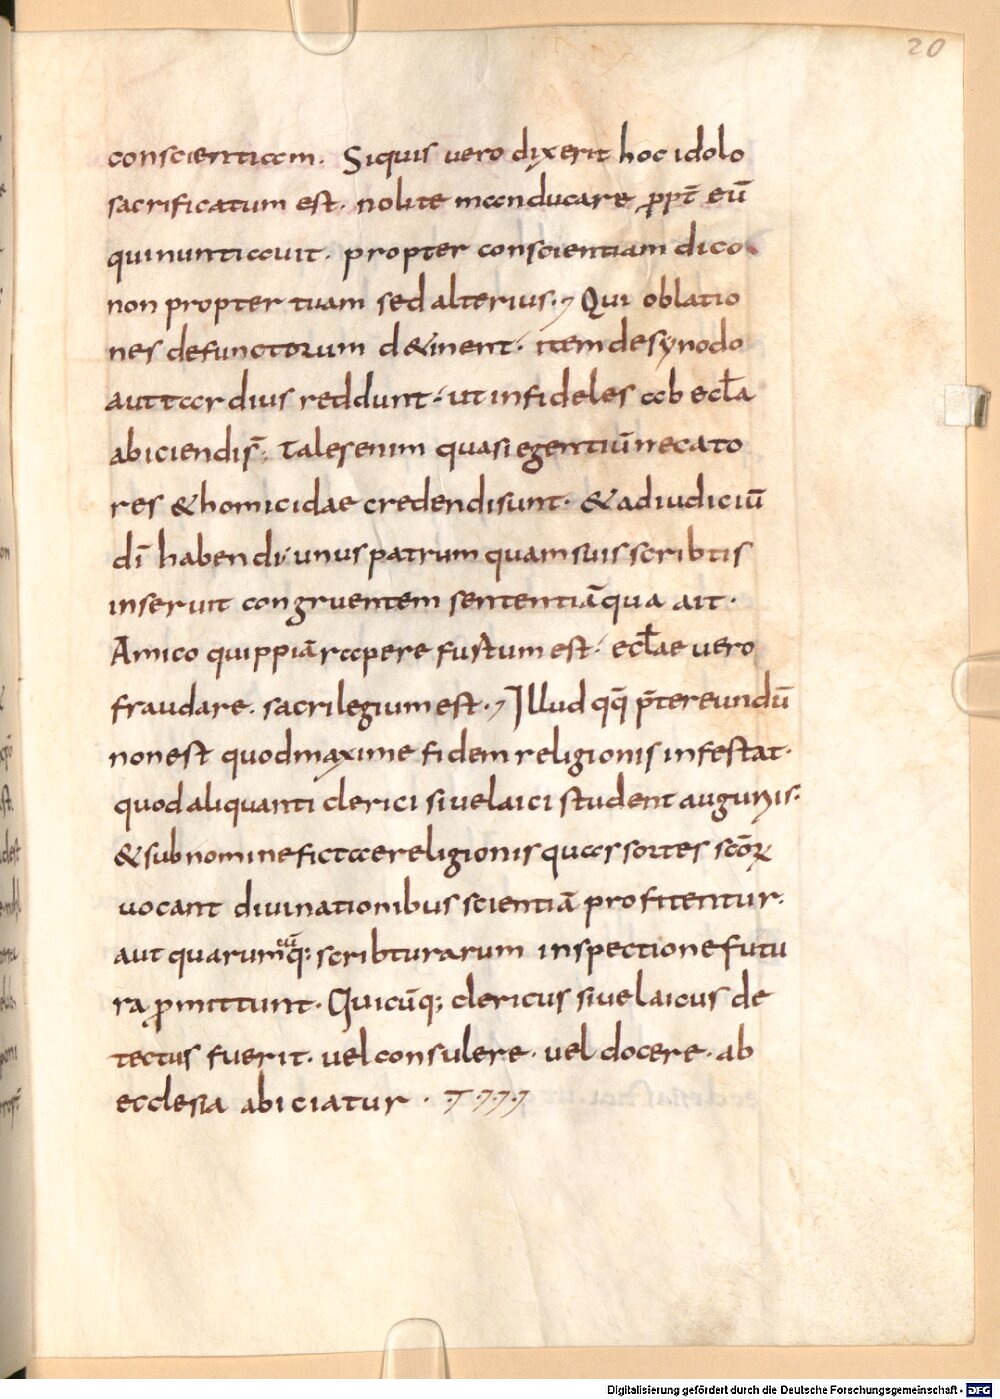 20
conscientiam. Siquis vero dixerit hoc idolo
sacrificatum est. nolite manducare ꝓpt̄ eū
quinuntiauit. propter conscientiam dico
non propter tuam sed alterius. Qui oblatio
nes defunctorum d&inent. item desynodo
aut tardius reddunt. ut infideles ab ecl̄a
abiciendis̄; talesenim quasi egentiūnecato
res &homicidae credendisunt. &adiudiciū
dī habendi. unuspatrum quamsuisscribtis
inseruit congruentem sententiāqua ait.
Amico quippiārapere fustum est. ecl̄ae vero
fraudare. sacrilegiumest. Illud qq̄ p̄tereundū
nonest quodmaxime fidem religionis infestat.
quodaliquanti clerici siuelaici student auguriis.
&subnominefictaereligionisquas sortes scōꝝ
uocant divinationibus scientiā profitentur.
aut quarumcūq; scribturarum inspectionefutu
ra ꝓmittunt. Quicūq; clericus siuelaicus de
tectus fuerit. uel consulere. vel docere. ab
ecclesia abiciatur.
Digitalisierung gefördert durch die Deutsche Forschungsgemeinschaft - DFG